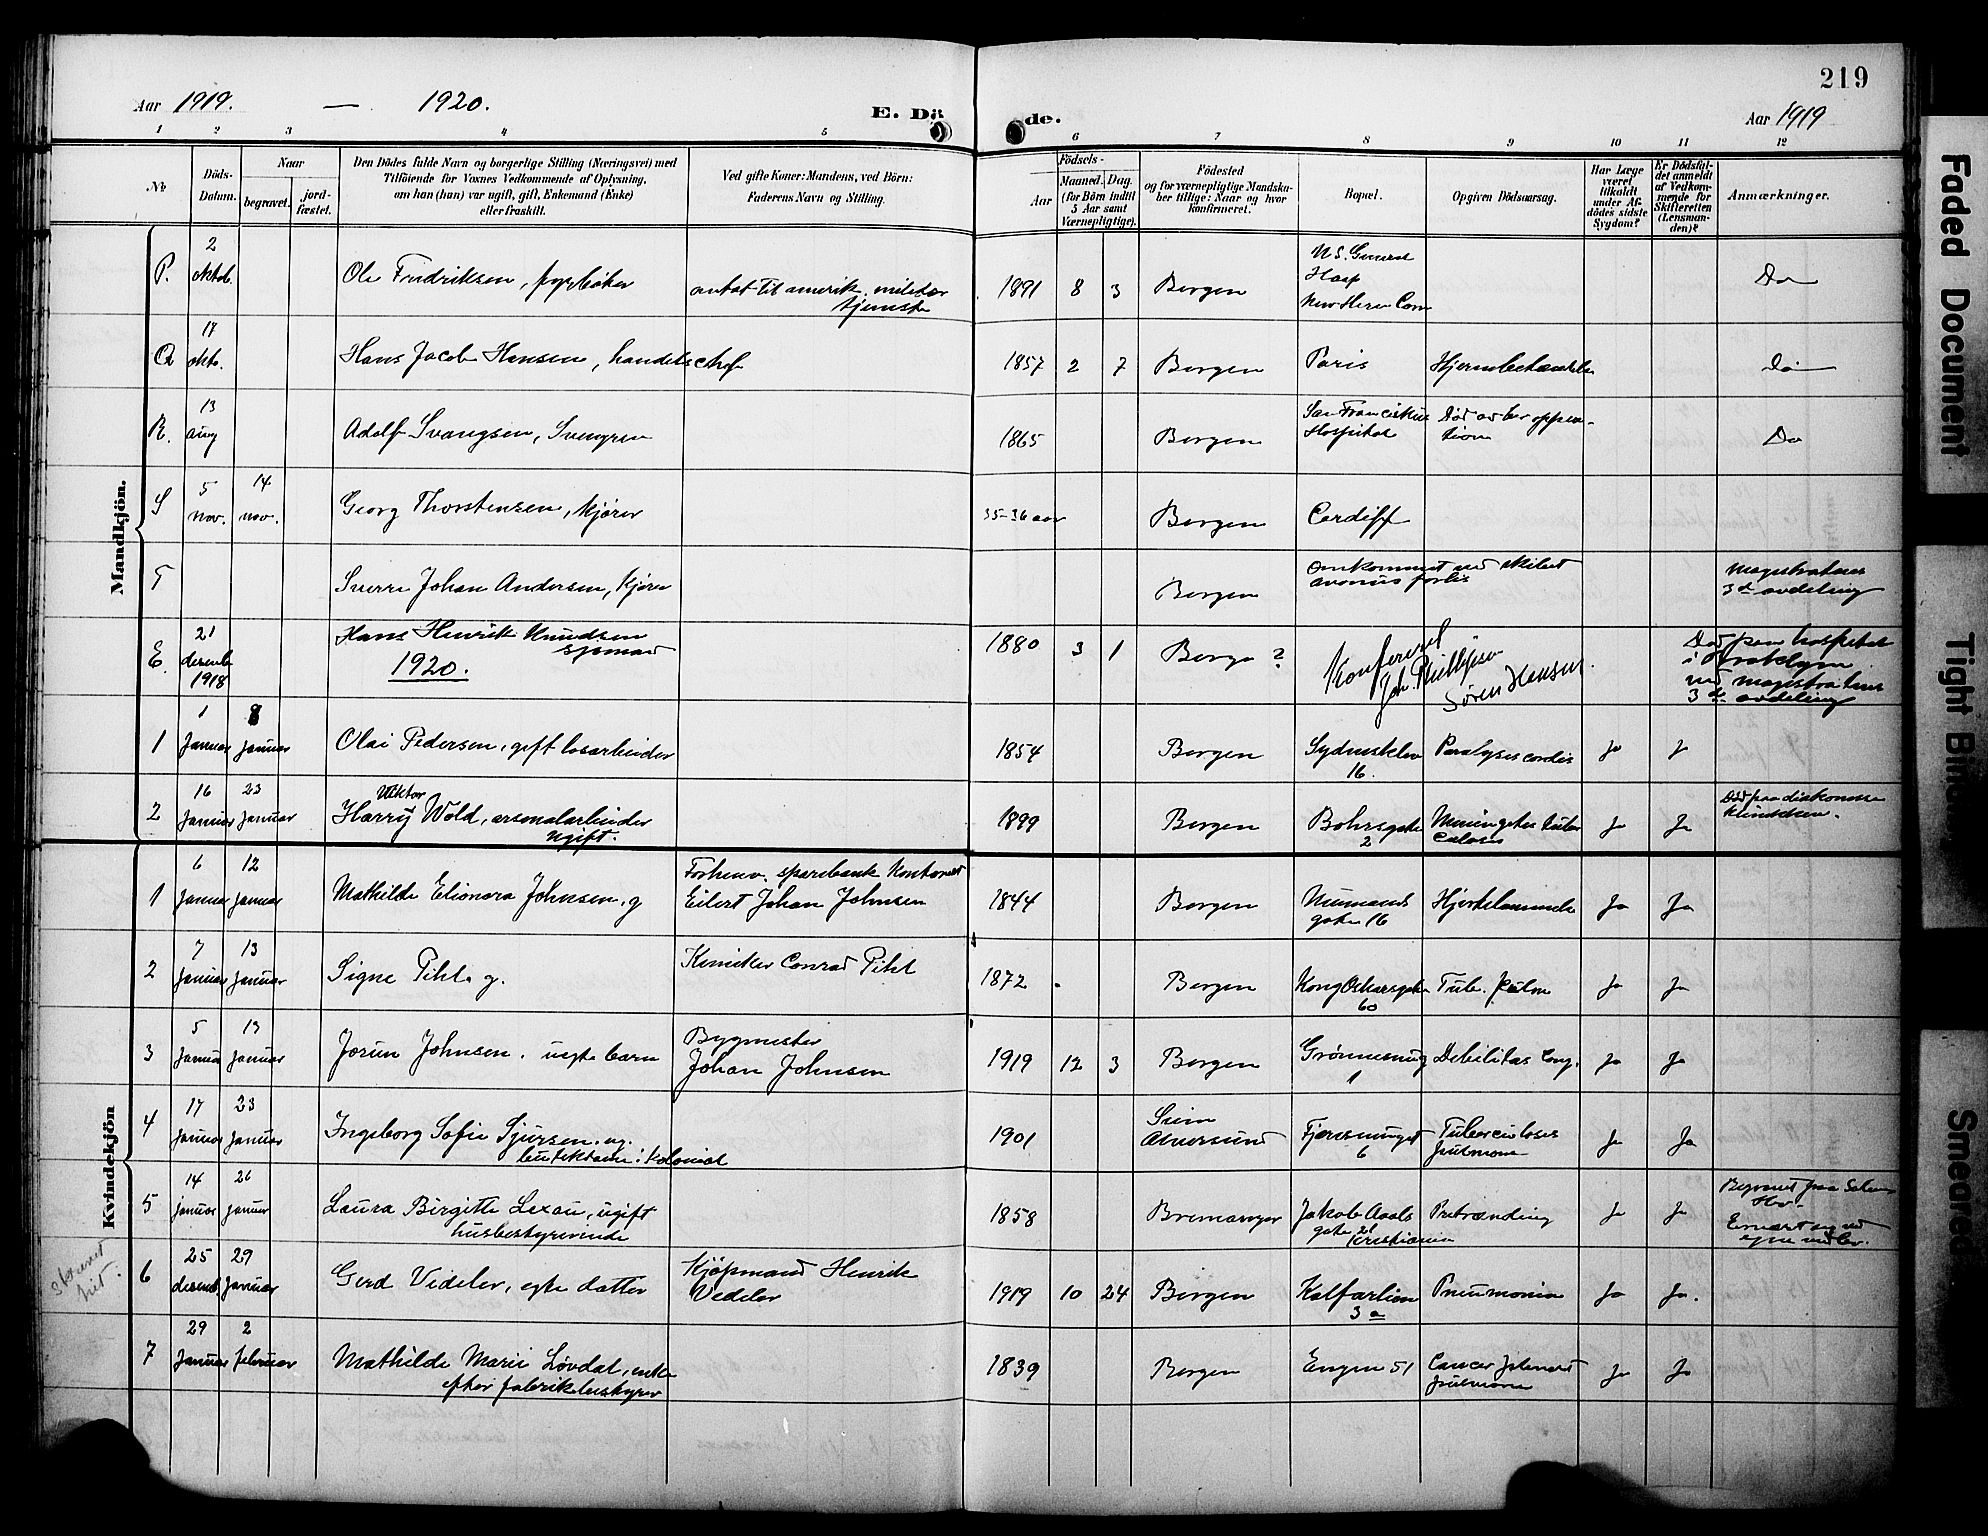 219
Aar 1919. — 1920.
E. Dö de.
Aar 1919
1 2 3 4 5 6 7 8 9 10 11 12
No
Döds-
Datum.
Naar
begravet.
jord-
fæstet.
Den Dödes fulde Navn og borgerlige Stilling (Næringsvei) med
Tilföiende for Voxnes Vedkommende af Oplysning,
om han (hun) var ugift, gift, Enkemand (Enke)
eller fraskilt.
Ved gifte Koner: Mandens, ved Börn:
Faderens Navn og Stilling.
Födsels-
Aar
Maaned. Dag.
(for Börn indtil
5 Aar samt
Værnepligtige).
Födested
og for værnepligtige Mandska-
ber tillige: Naar og hvor
konfirmeret.
Bopæl.
Opgiven Dödsaarsag.
Har Læge
været
tilkaldt
under Af-
dödes sidste
Sygdom?
Er Dödsfal-
det anmeldt
af Vedkom-
mende for
Skifteretten
(Lensman-
den)?
Anmærkninger.
Mandkjön.
P. 2 oktob. Ole Fredriksen, antat til amerik. militær
tjeneste 1891 8 3 Bergen U.S. General
Hosp
New Do
Q 17 okto. Hans Jacob Hansen, handelschef 1857 2 7 Bergen Paris Do
R. 13 aug Adolf Svangsen, 1865 Bergen San Franciskus
Hospital Død av Do
S 5 nov. 14 nov. Georg Thorstensen, kjører 35-36 aar Bergen Cardiff
T Sverre Johan Andersen, Bergen Omkommet ved skibet
magistratens
3de avdeling
E. 21 desemb 1918 Hans Henrik Knudsen
sjømand 1880 3 1 Berge? Død paa hospital
i Brooklyn
magistratens
3de avdeling
Konfereret
Joh. Phillipsen
Søren Hansen.
1920.
1 1 Januar 8 januar Olai Pedersen, gift løsarbeider 1854 Bergen 16. Paralysis cordis Ja J
2 16 Januar 23 Januar Harry Viktor Wold, arsenalarbeider
ugift. 1899 Bergen Bohrsgate
2 Ja Ja Død paa diakonisse
Kvindekjön
1 6 Januar 12 Januar Mathilde Elionora Johnsen. g Forhenv. sparebank
Eilert Johan Johnsen 1844 Bergen
gate 16 Hjertelammelse Ja Ja
2 7 Januar 13 Januar Signe Pihl. g. Kemiker Conrad Pihl 1872 Bergen Kong Oskarsgate
60 Tub. pulm Ja Ja
3 5 Januar 13 Januar Jorun Johnsen. egte barn Bygmester
Johan Johnsen 1919 12 3 Bergen Grønnesmug
1 Debilitas cong. Ja Ja
4 17 Januar 23 Januar Ingeborg Sofie Sjursen. ug. 1901 Seim
Alversund Fjeresmuget
6 Tuberculosis
pulmonum Ja Ja
5 14 januar 26 januar Laura Birgitte Lexau, ugift
husbestyrerinde 1858 Bremanger Jakob Aalls
gate 21
Kristiania Ja Ja Begravet fra
6 25 desemb 29 Januar Gerd Vedeler, egte datter Kjøpmand Henrik
Vedeler 1919 10 24 Bergen Kalfarlien
3 a Pneumonia Ja Ja.
7 29 Januar 2 februar Mathilde Marie Løvdal, enke
efter fabrikbestyrer 1839 Bergen Engen 51 Cancer
Ja Ja
Faded Document
Tight Binding
Smeared